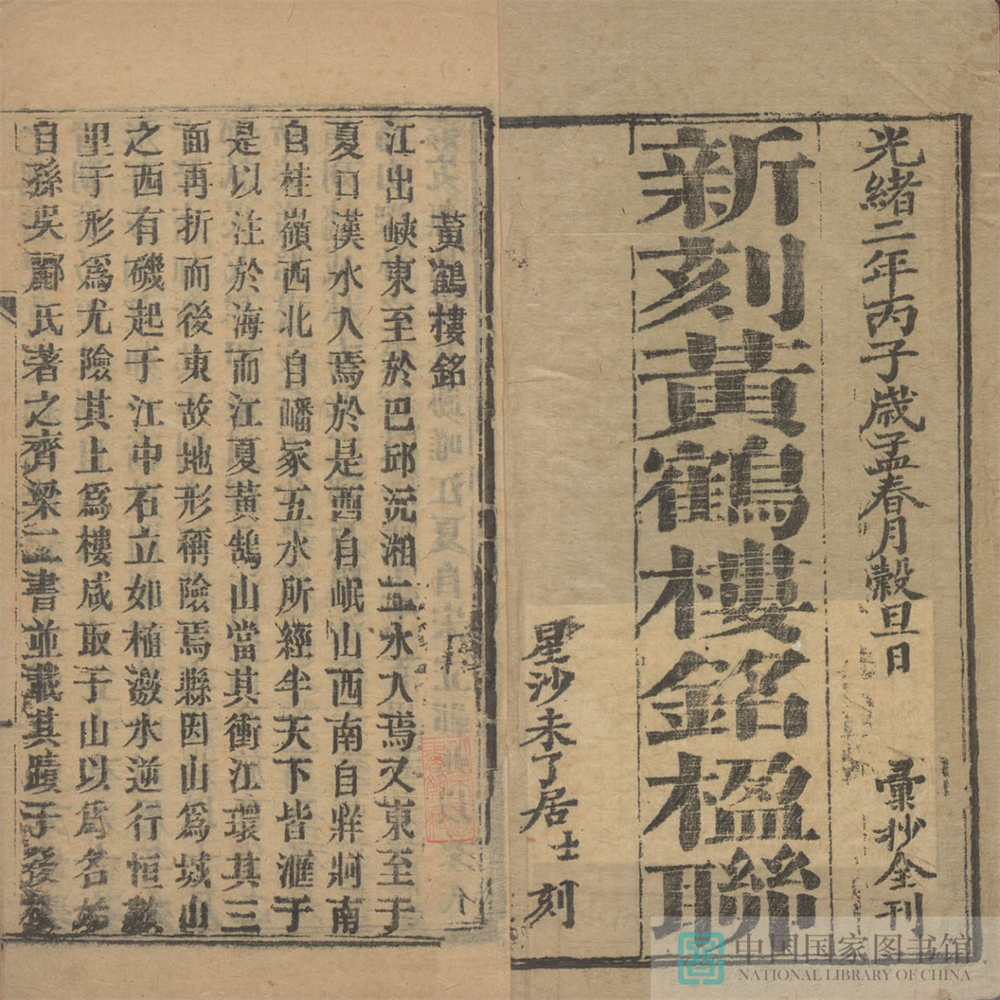 光緒二年丙子歲孟春月穀旦日
彙抄全刊
新刻黃鶴樓銘楹聯
星沙未了居士 刻
黃鶴樓銘
江出峽東至於巴邱沅湘五水入焉又東至于
夏口漢水入焉於是酉自岷山西南自牂牁南
自桂嶺西北自嶓冢五水所經半天下皆滙于
是以注於海而江夏黃鵠山當其衝江環其三
面再折而後東故地形稱險焉縣因山爲城山
之西有磯起于江中石立如植激水逆行恒數
里于形爲尤險其上爲樓咸取于山以爲名始
自孫吳酈氏著之齊梁二書並載其蹟于後
中国国家图书馆
NATIONAL LIBRARY OF CHINA